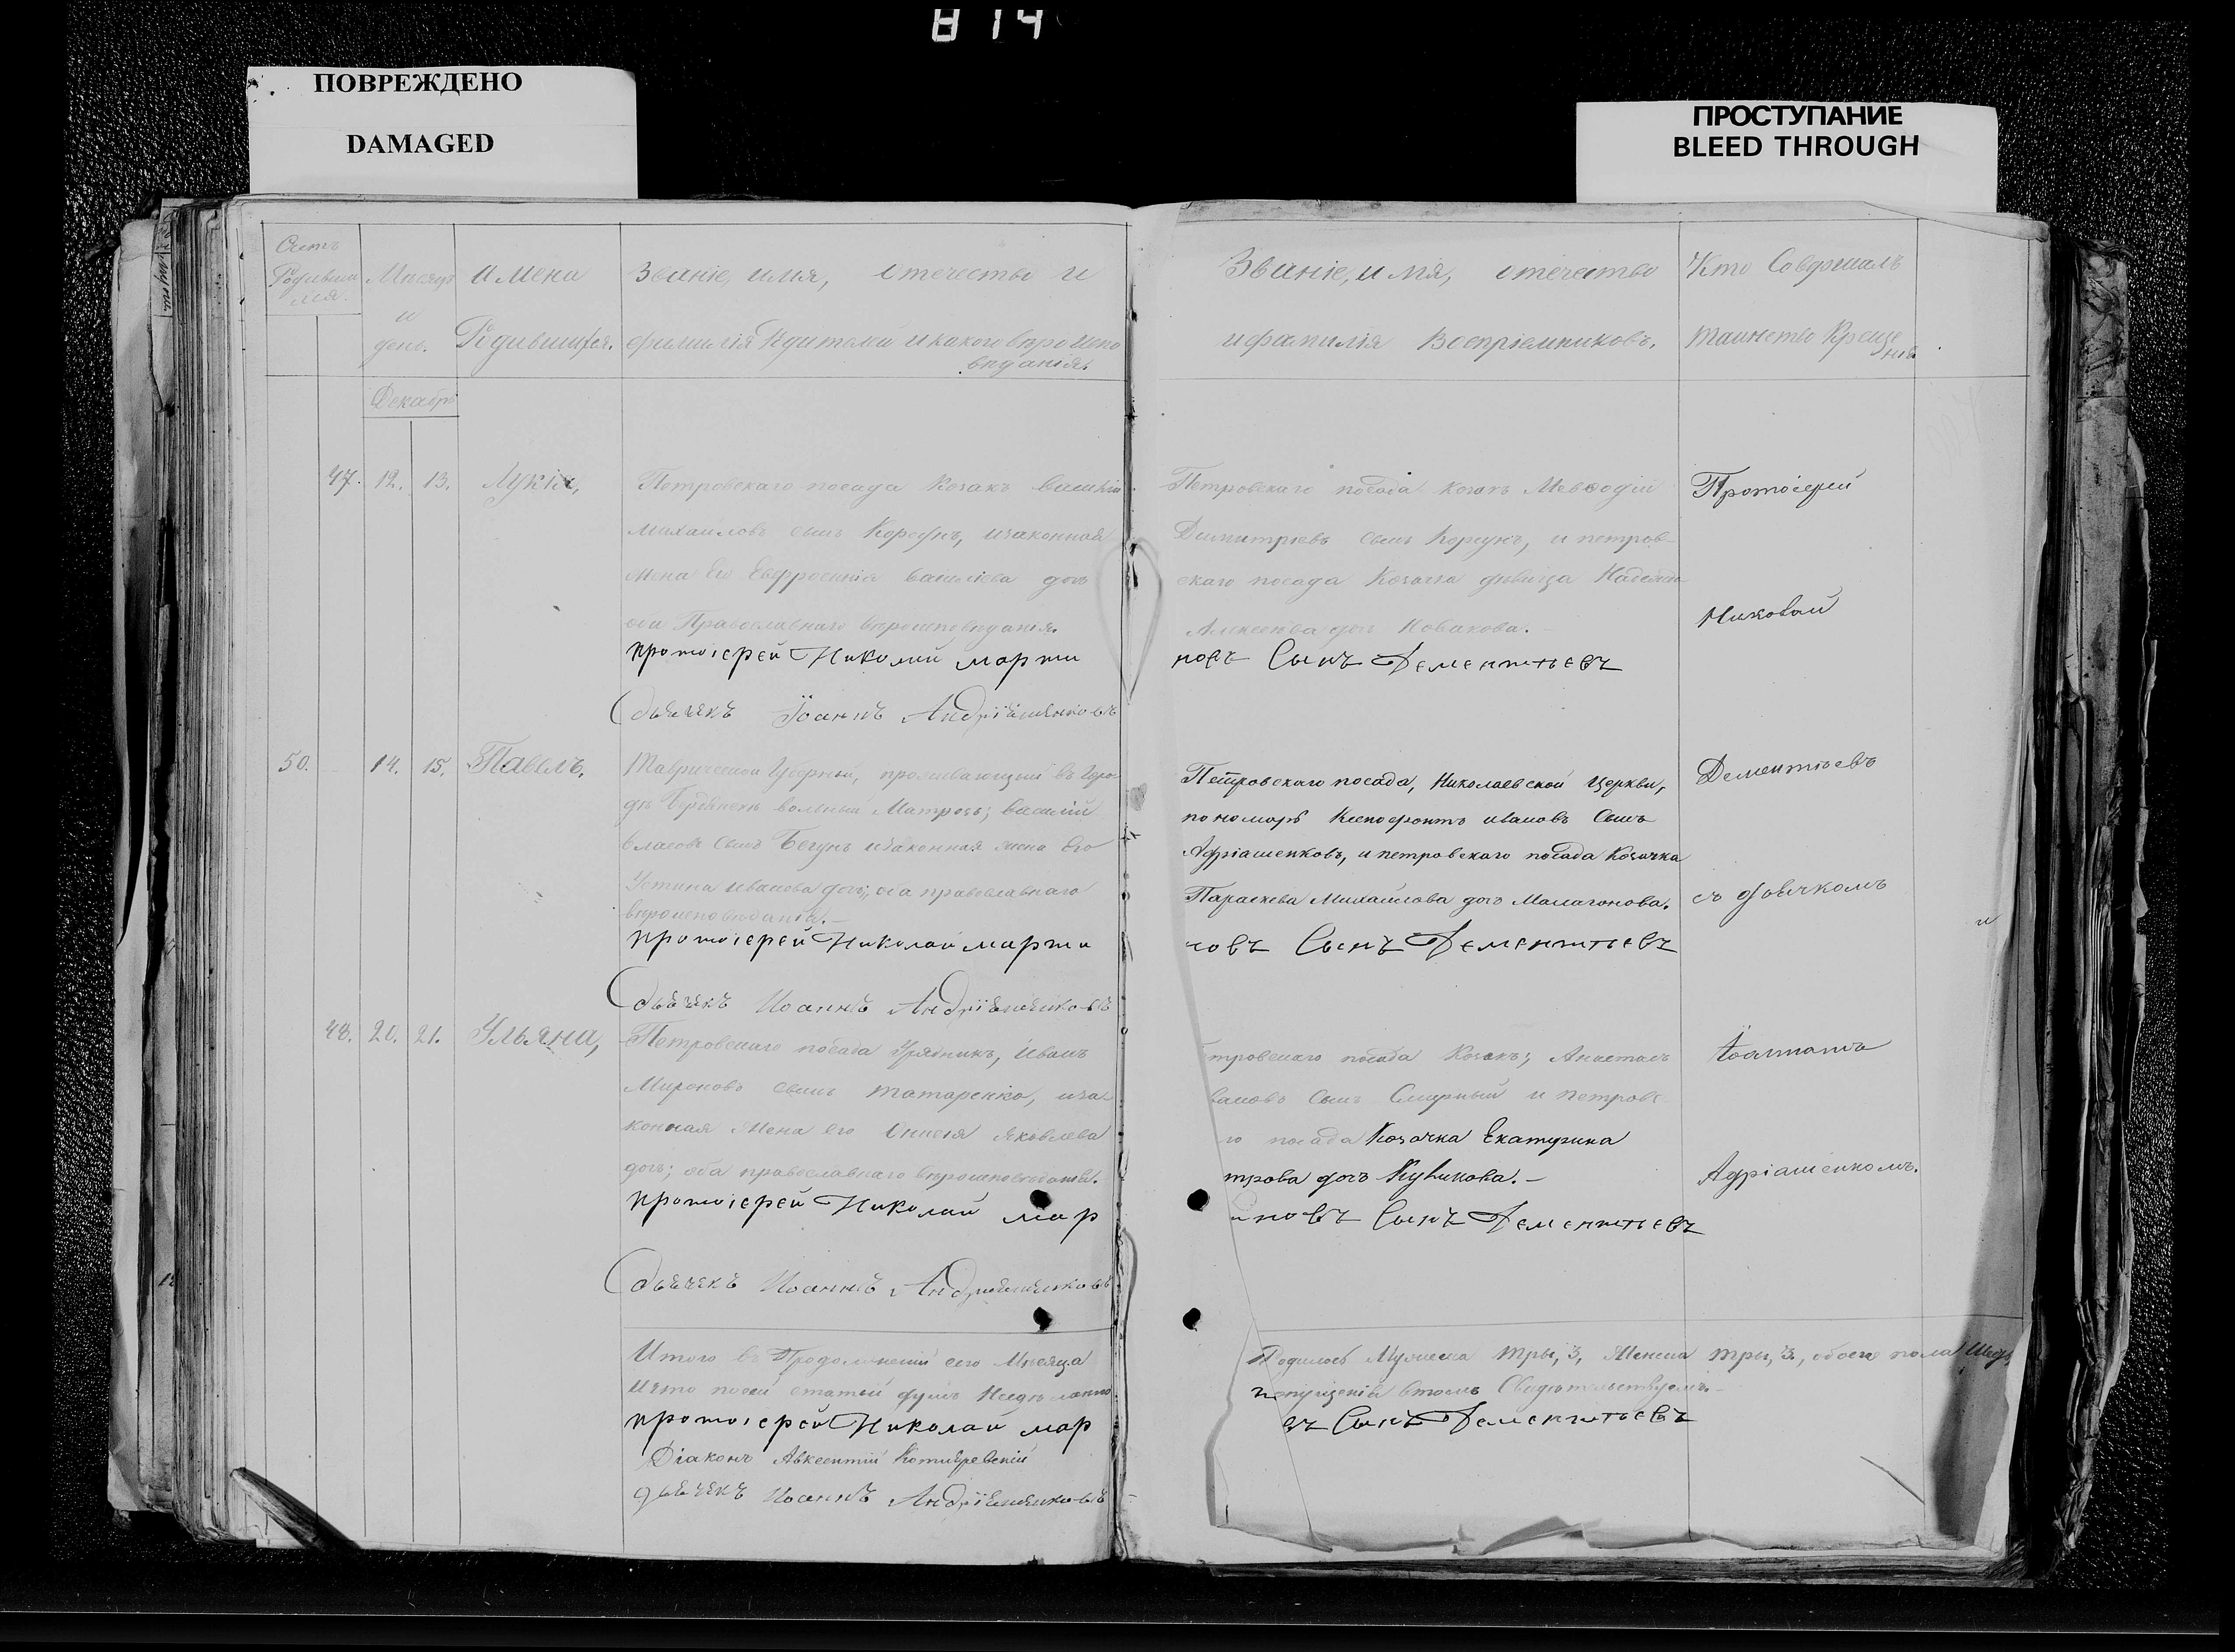 814
ПОВРЕЖДЕНО
DAMAGED
ПРОСТУПАНИЕ
BLEED THROUGH
Счетъ
Родивши
мся.
Мѣсяцъ
и
день.
Имена
Родившихся.
Званіе, имя, отечество и
фамилія Родителей и какого вѣроиспо
вѣданія.
Званіе, имя, отечество
и фамилія Воспріемниковъ.
Кто Совершалъ
таинство Креще
нія
Декабрь
47. 12. 13. Лукія,
Петровскаго посада Козакъ Василій
Михаиловъ сынъ Корсунъ, изаконная
жена Его Евфросинія Василіева дочь
оба Православнаго вѣроисповѣданія.
протоіерей Николай марти
дьячекъ Іоаннъ Андріяшенковъ
Петровскаго посада козакъ Меѳодій
Димитріевъ сынъ Корсунъ, и петров-
скаго посада Козачка дѣвица Надежда
Алексеева дочь Новакова.
новъ Сынъ Дементьевъ
Протоіерей
Николай
50. 14. 15. Павелъ,
Таврической Губерніи, проживающій въ Горо-
дѣ Бердянскѣ вольный Матрозъ; Василій
Власовъ сынъ Бегунъ изаконная жена Его
Устина Иванова дочь; оба православнаго
вѣроисповѣданія.
протоіерей Николай марти
дьячекъ Иоаннъ Андріяшенковъ
Петровскаго посада, Николаевской Церкви,
пономарь Ксенофонтъ ивановъ Сынъ
Адріашенковъ, и петровскаго посада Козачка
Параскева Михайлова дочь Малагонова.
новъ Сынъ Дементьевъ
Дементьевъ
съ дьячкомъ
48. 20. 21. Ульяна,
Петровскаго посада Урядникъ, Иванъ
Мироновъ сынъ Татаренко, иза-
конная Жена его Онисія Яковлева
дочь; оба православнаго вѣроисповѣданія.
протоіерей Николай мар
дьячекъ Иоаннъ Андріяшенковъ
тровскаго посада Козакъ; Анастасъ
вановъ Сынъ Смирный и петровс
го посада Козачка Екатерина
трова дочь Куликова.
иновъ Сынъ Дементьевъ
Іоанномъ
Адріашенкомъ.
Итого въ Продолженіи сего Мѣсяца
Родилось Мужеска три, 3, Женска три, 3, обоего пола
Что посей статьи душъ
въ томъ Свидѣтельствуемъ.
протоіерей Николай мар
въ Сынъ Дементьевъ
Діаконъ Авксентій Котляревскій
дьячекъ Иоаннъ Андріяшенковъ